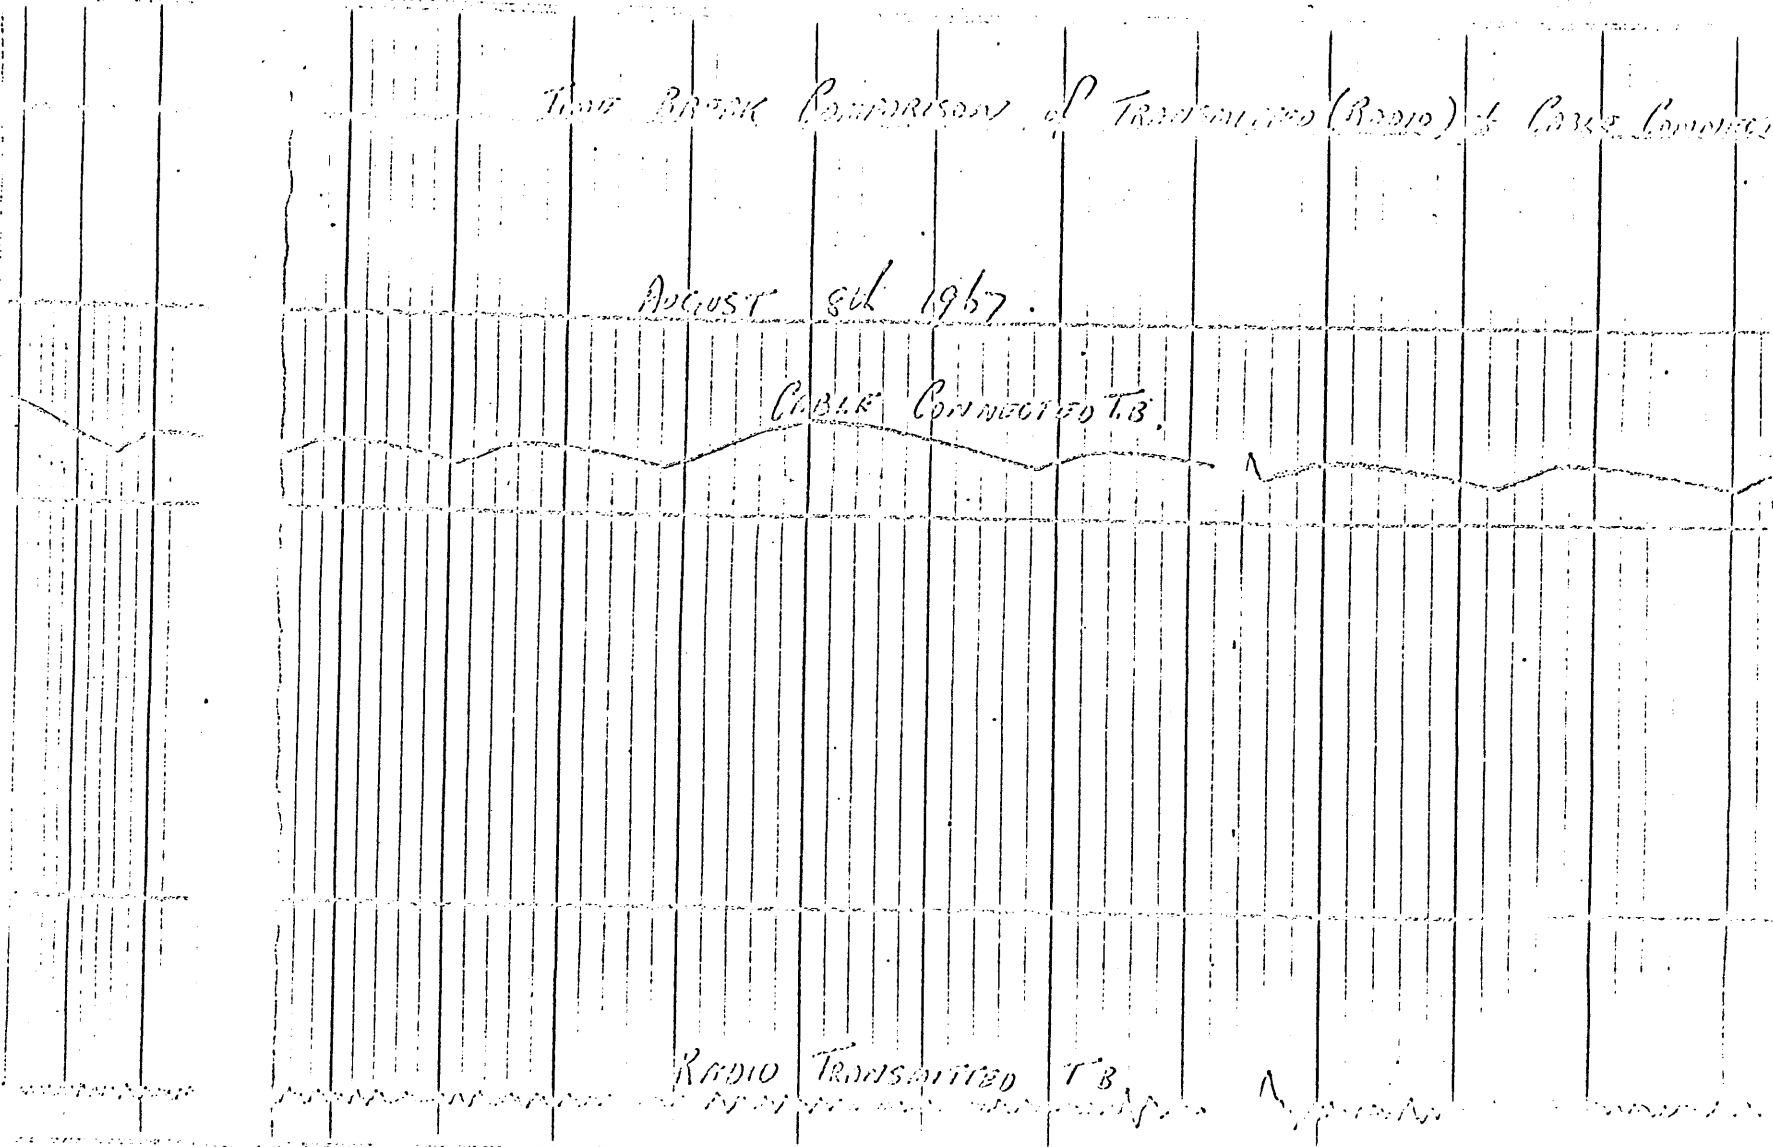 TIME BREAK COMPARISON of TRANSMITTED (RADIO) & CABLE CONNEC
AUGUST 8th 1967.
CABLE CONNECTED T.B.
RADIO TRANSMITTED T B.